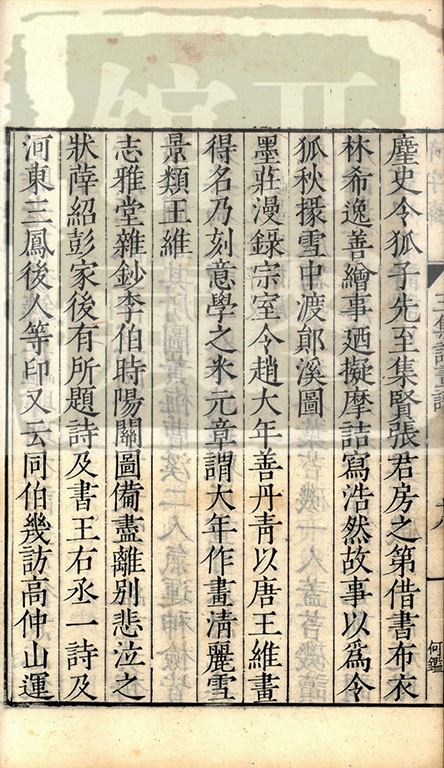 麈史令狐子先至集賢張君房之第借書布衣
林希逸善繪事廼擬摩詰寫浩然故事以爲令
狐秋掾雪中渡鄖溪圖
墨莊漫錄宗室令趙大年善丹青以唐王維畫
得名乃刻意學之米元章謂大年作畫清麗雪
景類王維
志雅堂雜鈔李伯時陽關圖備盡離別悲泣之
狀薛紹彭家後有所題詩及書王右丞一詩及
河東三鳳後人等印又云同伯幾訪高仲山運
何鑑